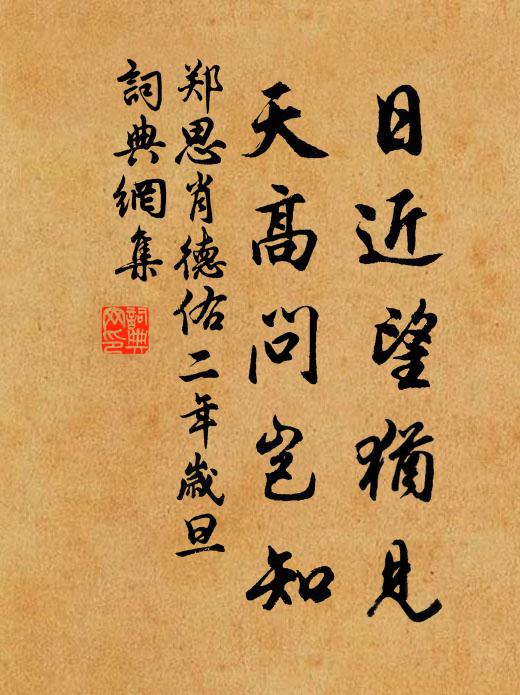 日近望猶見
天高問岂知
郑思肖德佑二年歲旦
詞典網集
詞典网印